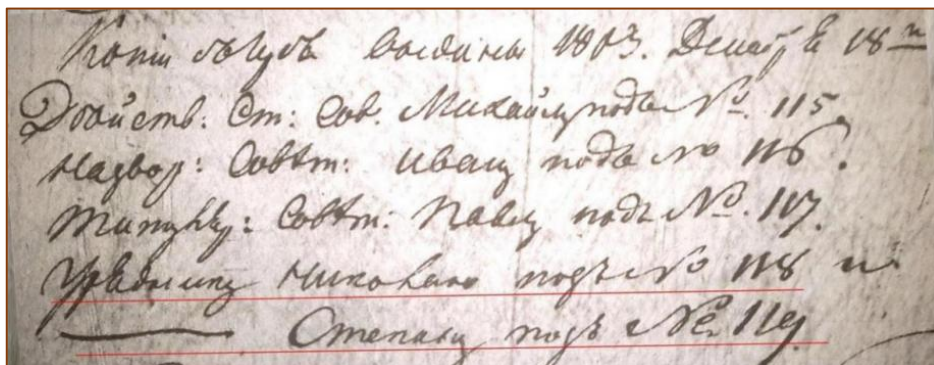 Копіи съ сихъ выданы 1803. Декабр. 18<sup>го</sup>
Дѣйств: Ст: Сов. Михайлу подъ №. 115.
Надвор: Совѣт: Ивану подъ № 116.
Титуляр: Совѣт: Павлу подъ №. 117.
Уряднику Николаю подъ № 118 и
Степану подъ № 119.